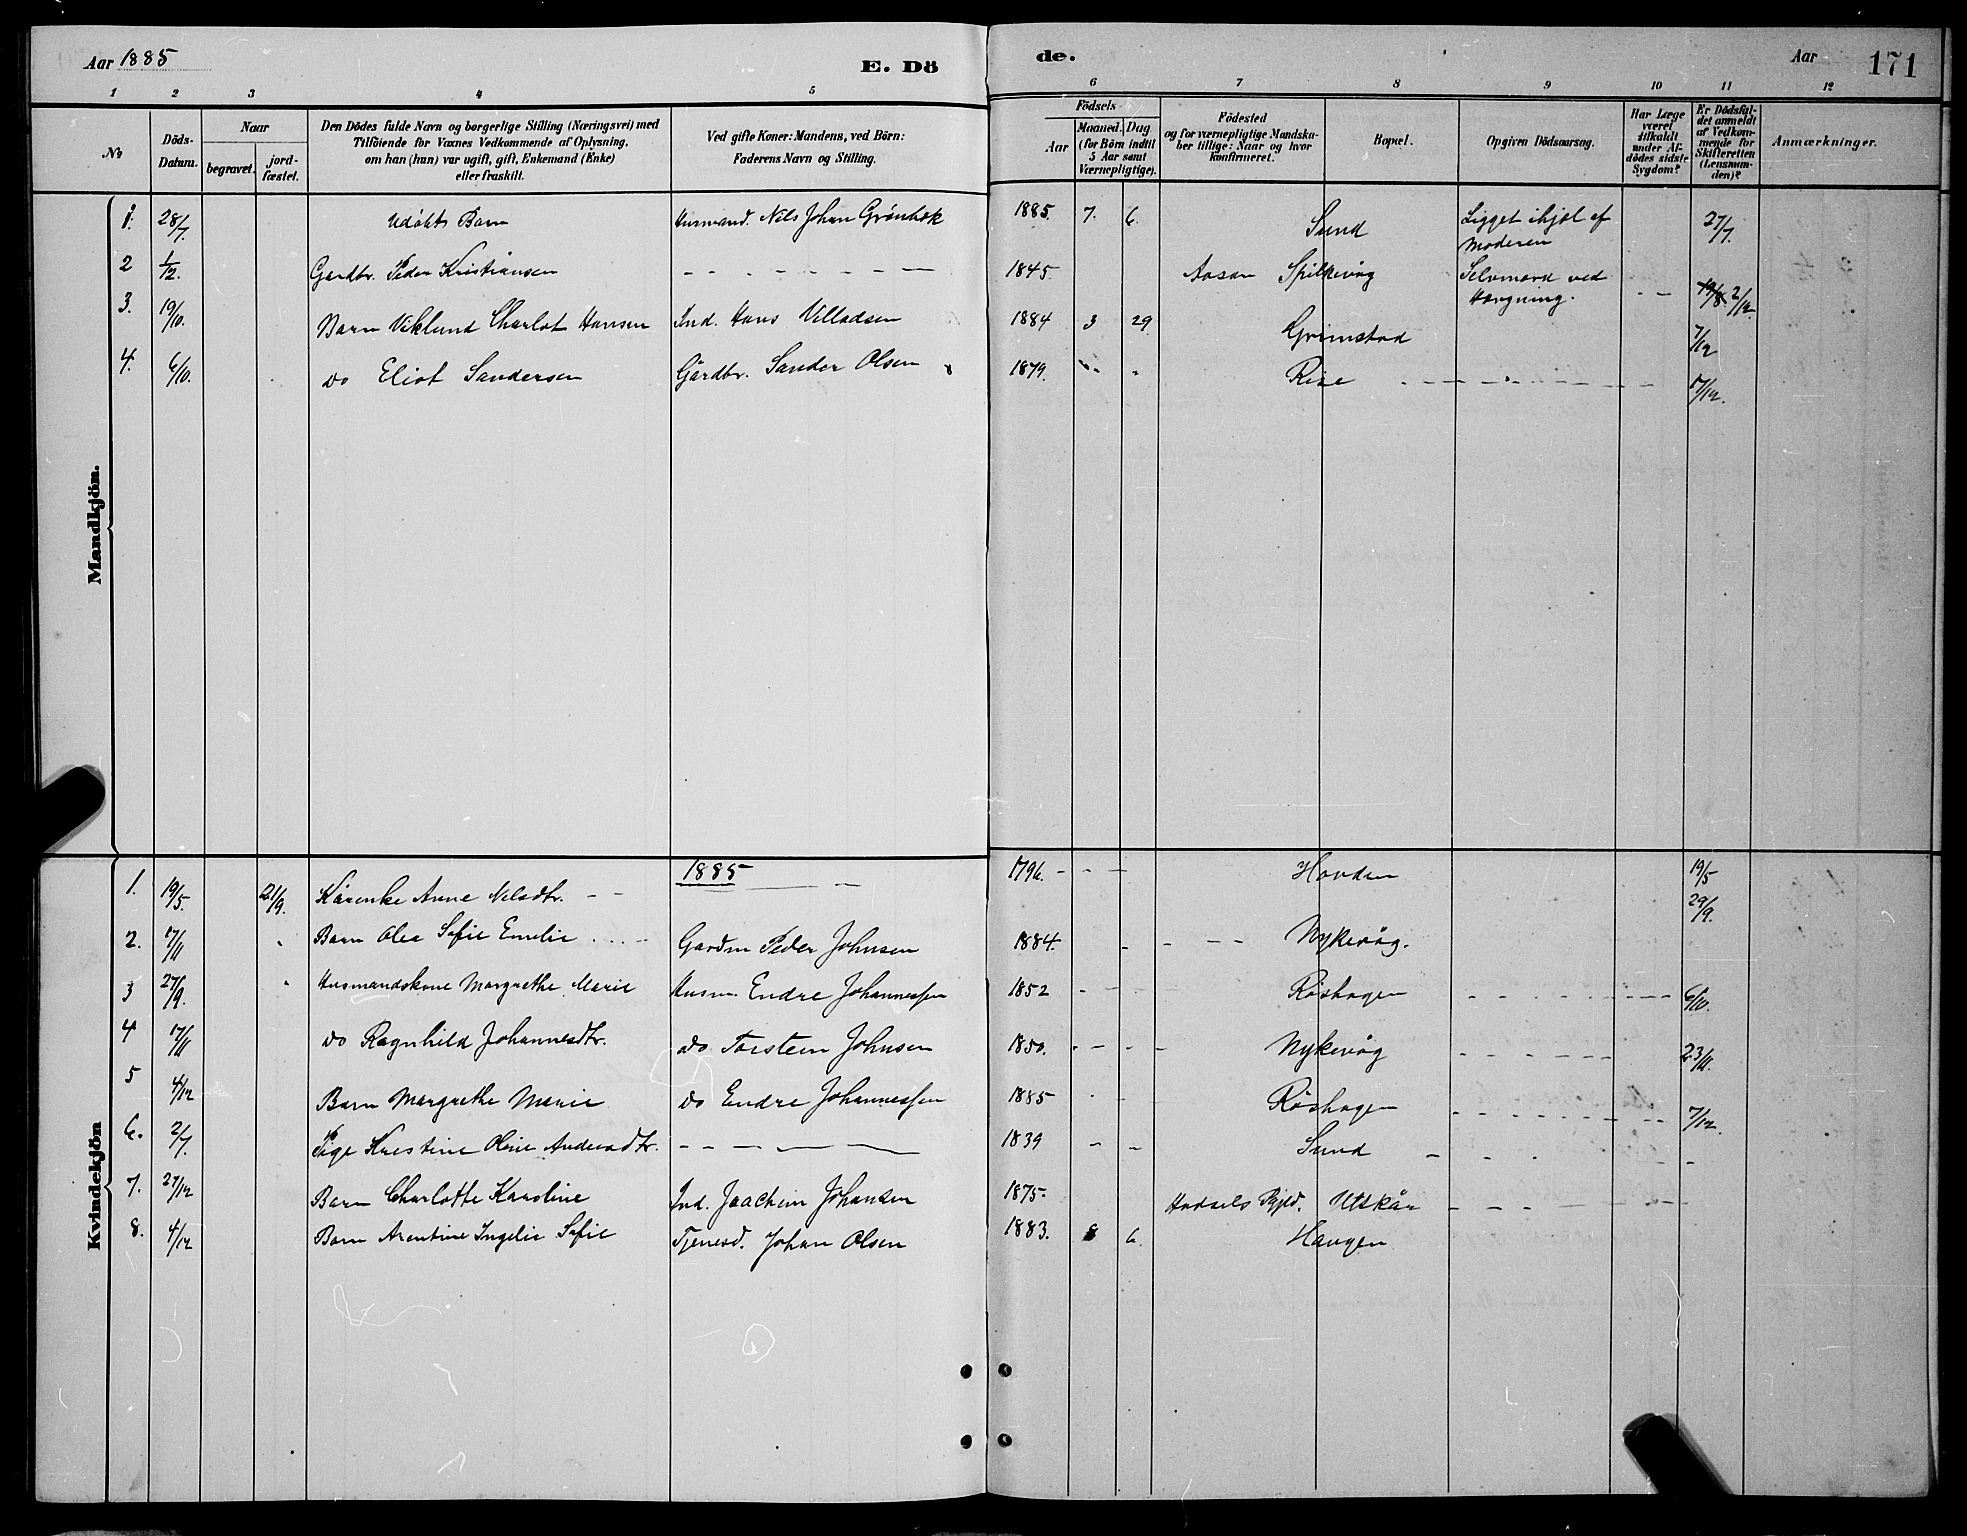 Aar 1885
E. Dö
de.
Aar
171
1 2 3 4 5 6 7 8 9 10 11 12
No
Döds-Datum.
Naar
begravet.
jord-fæstet.
Den Dödes fulde Navn og borgerlige Stilling (Næringsvei) med
Tilföiende for Voxnes Vedkommende af Oplysning,
om han (hun) var ugift, gift, Enkemand (Enke)
eller fraskilt.
Ved gifte Koner: Mandens, ved Börn:
Faderens Navn og Stilling.
Födsels-
Aar
Maaned.
Dag
(for Börn indtil
5 Aar samt
Værnepligtige).
Födested
og for værnepligtige Mandska-
ber tillige: Naar og hvor
konfirmeret.
Bopæl.
Opgiven Dödsaarsag.
Har Læge
været
tilkaldt
under Af-
dödes sidste
Sygdom?
Er Dödsfal-
det anmeldt
af Vedkom-
mende for
Skifteretten
(Lensman-
den)?
Anmærkninger.
Mandkjön.
1. 28/7. Udöbt Barn Husmand. Nils Johan Grönbæk 1885. 7. 6. Sund Ligget ihjel af Moderen 27/7.
2 1/12. Gardbr. Peder Kristiansen 1845. Spilkevåg Selvmord ved Hængning. 19/8 2/12.
3. 19/10. Barn Viklund Charlot Hansen Ind. Hans Villadsen 1884 3 29 Grimstad 7/12
4. 6/10. do Eliot Sandersen Gårdbr. Sander Olsen 1879. Rise 17/12.
Kvindekjön
1885
1. 19/5. 21/9. Kårenke Anne Nilsdtr. 1796. Hovden 19/5 29/9.
2. 17/11 Barn Olea Sofie Emelie Gardm Peder Johnsen 1884. Nykevåg.
3 27/9. Husmandskone Margrethe Marie Husm. Endre Johannessen 1852 Röshagen 6/10.
4 17/11 do Ragnhild Johannesdtr. do Torstein Johnsen 1850. Nykevåg 23/11.
5 4/12 Barn Margrethe Marie do Endre Johannessen 1885 Röshagen 7/12.
6. 2/7. Pige Kristine Oline Andersdtr. 1839 Sund
7. 27/12 Barn Charlotte Karoline Ind. Joachim Johansen 1875. Hadsels Utskår
8. 4/12 Barn Arentine Ingelie Sofie Tjenesd. Johan Olsen 1883. 8 6. Haugen